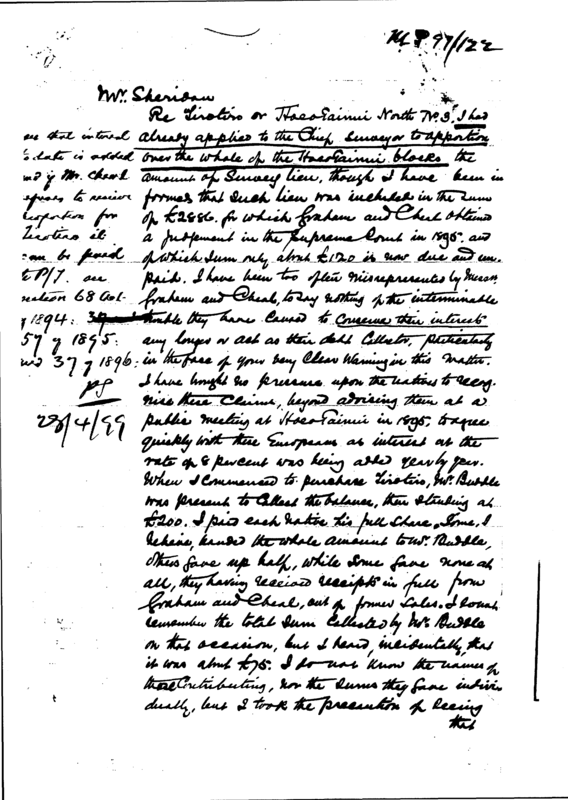 M P 97/122
Mr. Sheridan
Re Tirotiro or HoeoTainui North No. 3. I had
already applied to the Chief Surveyor to apportion
over the whole of the HoeoTainui blocks the
amount of Survey lien, though I have been in
formed that such lien was included in the sum
of £2886. for which Graham and Cheal obtained
a judgement in the Supreme Court in 1895. and
of which sum only about £120 is now due and un-
paid. I have been too often misrepresented by Messrs
Graham and Cheal, to say nothing of the interminable
trouble they have caused to conserve their interests
any longer or act as their debt Collector, particularly
in the face of your very clear warning in this matter.
I have brought no pressure upon the natives to recog-
nise these claims, beyond advising them at a
public meeting at HoeoTainui in 1895, to agree
quickly with these Europeans as interest at the
rate of 8 percent was being added year by year.
When I commenced to purchase Tirotiro, Mr. Buddle
was present to collect the balance, then standing at
£200. I paid each native his full share. Some, I
believe, handed the whole amount to Mr. Buddle,
others gave up half, while some gave none at
all, they having received receipts in full from
Graham and Cheal, out of former sales. I do not
remember the total sum collected by Mr. Buddle
on that occasion, but I heard, incidentally, that
it was about £75. I do not know the names of
those contributing, nor the sums they gave indivi
dually, but I took the precaution of seeing
that
see that interest
to date is added
and if Mr. Cheal
refuses to receive
proportion for
Tirotiro it
can be paid
to P/T. see
section 68 Act
of 1894:
57 of 1895:
and 37 of 1896
PS
28/4/99